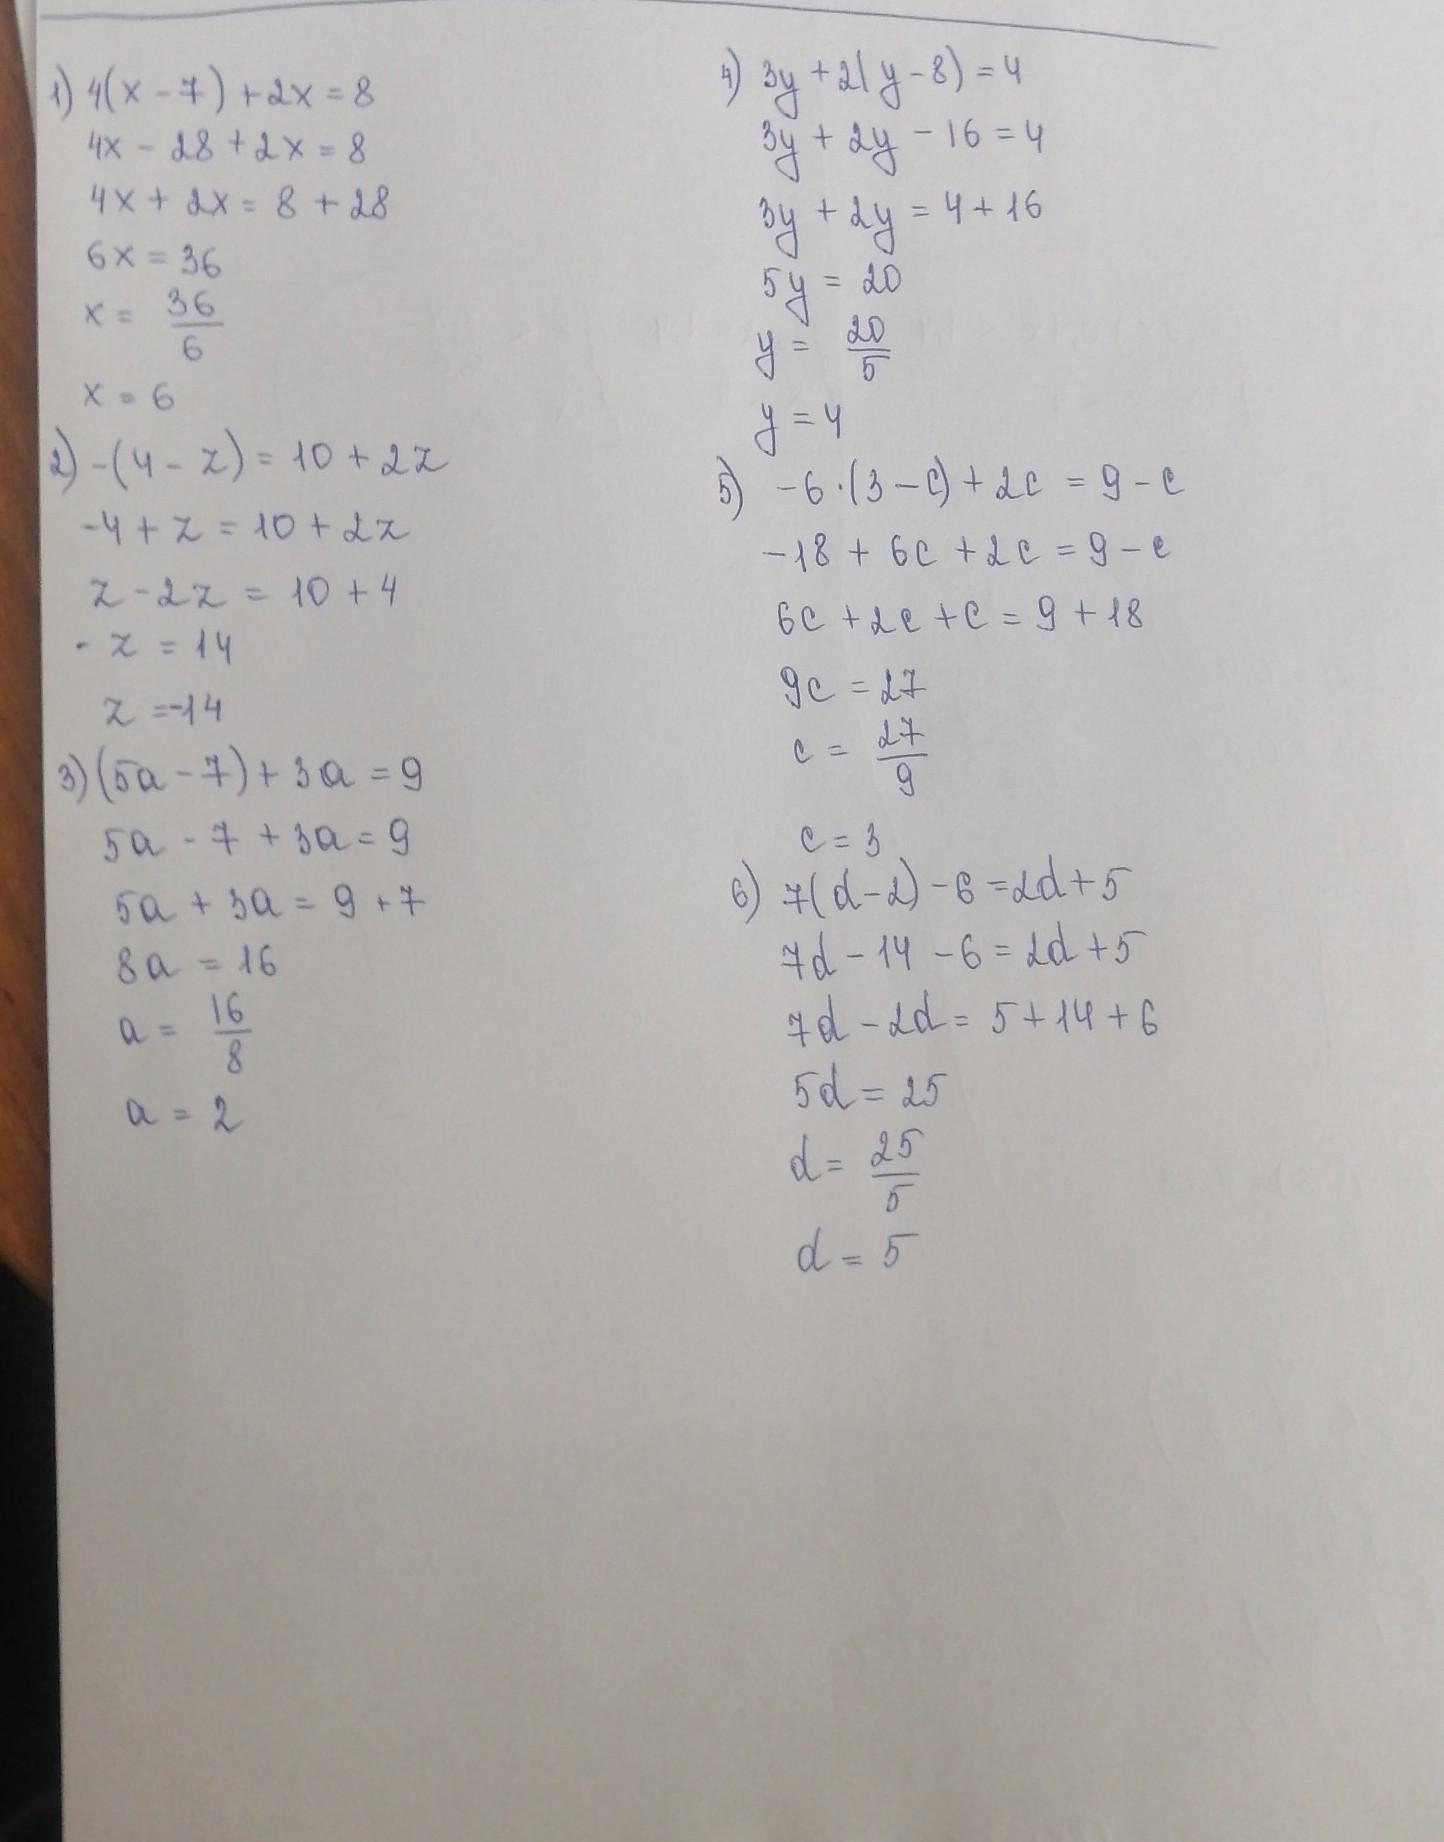 1) 4(x - 7) + 2x = 8
4x - 28 + 2x = 8
4x + 2x = 8 + 28
6x = 36
x = 36/6
x = 6
2) -(4 - z) = 10 + 2z
-4 + z = 10 + 2z
z - 2z = 10 + 4
- z = 14
z = -14
3) (5a - 7) + 3a = 9
5a - 7 + 3a = 9
5a + 3a = 9 + 7
8a = 16
a = 16/8
a = 2
4) 3y + 2(y - 8) = 4
3y + 2y - 16 = 4
3y + 2y = 4 + 16
5y = 20
y = 20/5
y = 4
5) -6·(3 - c) + 2c = 9 - c
-18 + 6c + 2c = 9 - c
6c + 2c + c = 9 + 18
9c = 27
c = 27/9
c = 3
6) 7(d - 2) - 6 = 2d + 5
7d - 14 - 6 = 2d + 5
7d - 2d = 5 + 14 + 6
5d = 25
d = 25/5
d = 5